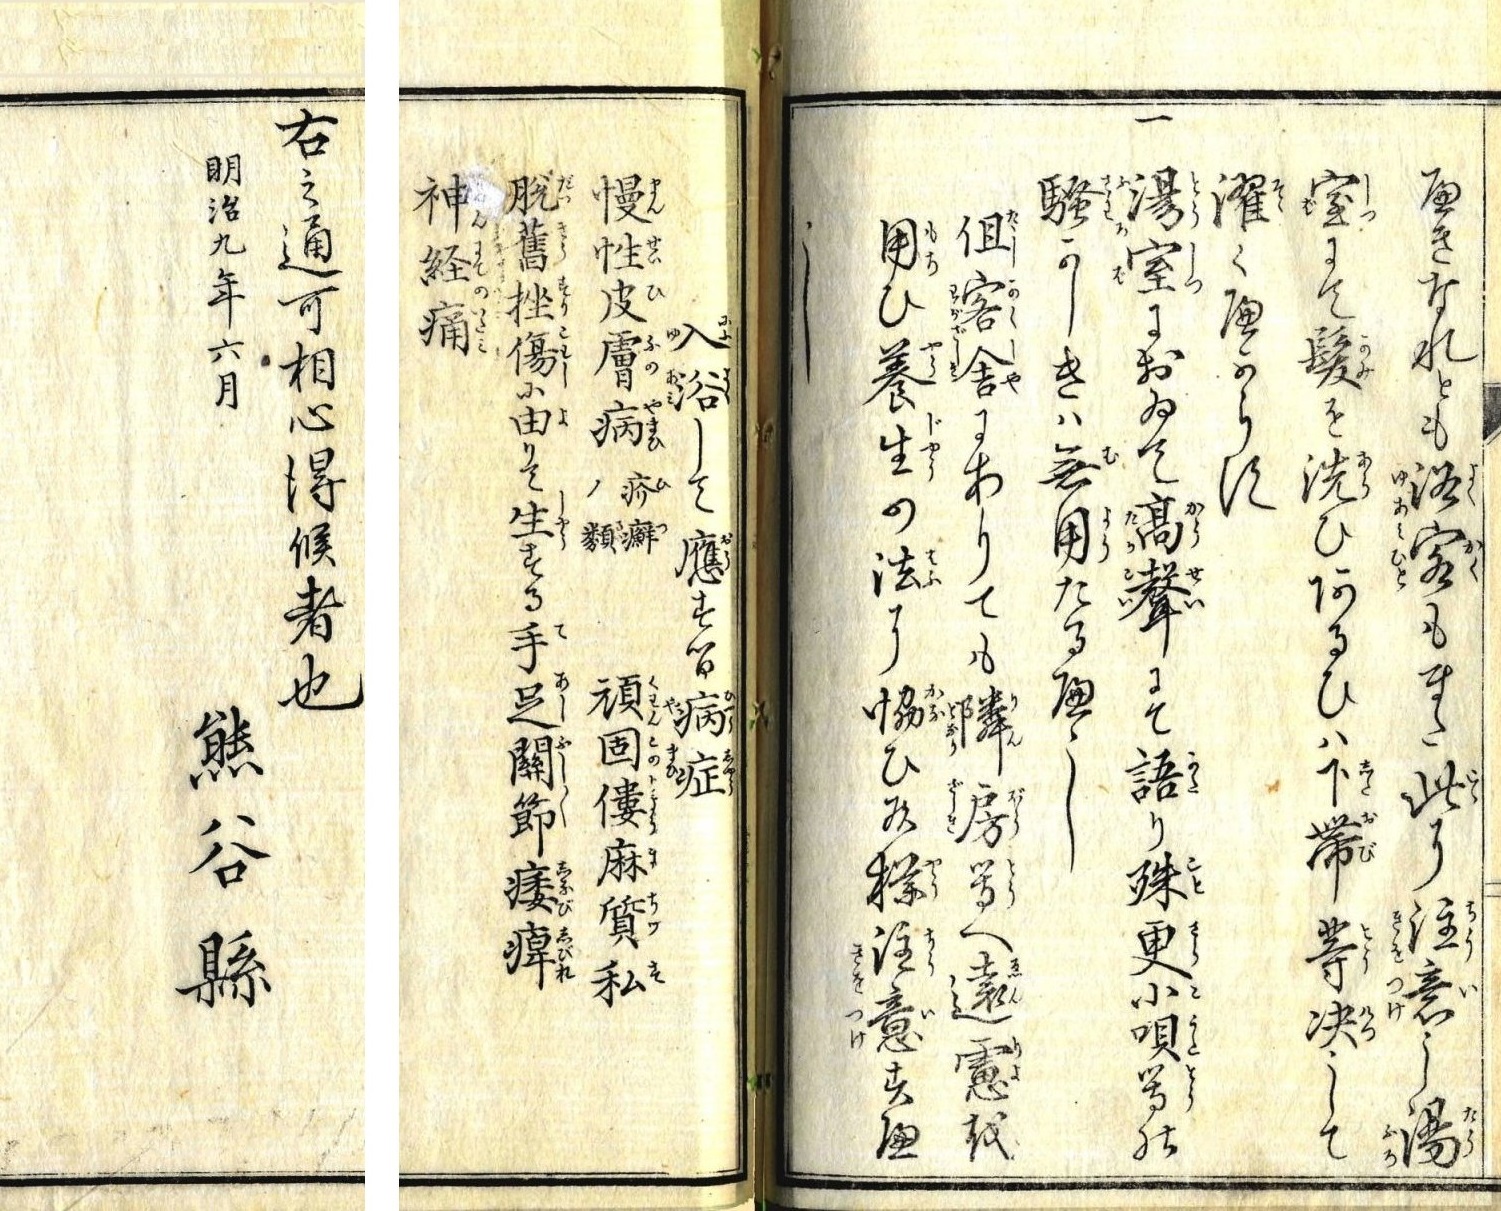 べきなれとも浴客もまた此に注意し湯
室にて髪を洗ひ阿るひハ下帯等决して
濯くべからす
一湯室におゐて高聲にて語り殊更小唄等の
騒かしきハ無用たるべし
但客舎にありても隣房等へ遠慮を
用ひ養生の法に恊ひ候様注意すべ
し
入浴して應すへき病症
慢性皮膚病 疥癬ノ類 頑固僂麻質私
脱舊挫傷に由りて生する手足關節痿痺
神経痛
右之通可相心得候者也
明治九年六月
熊谷縣